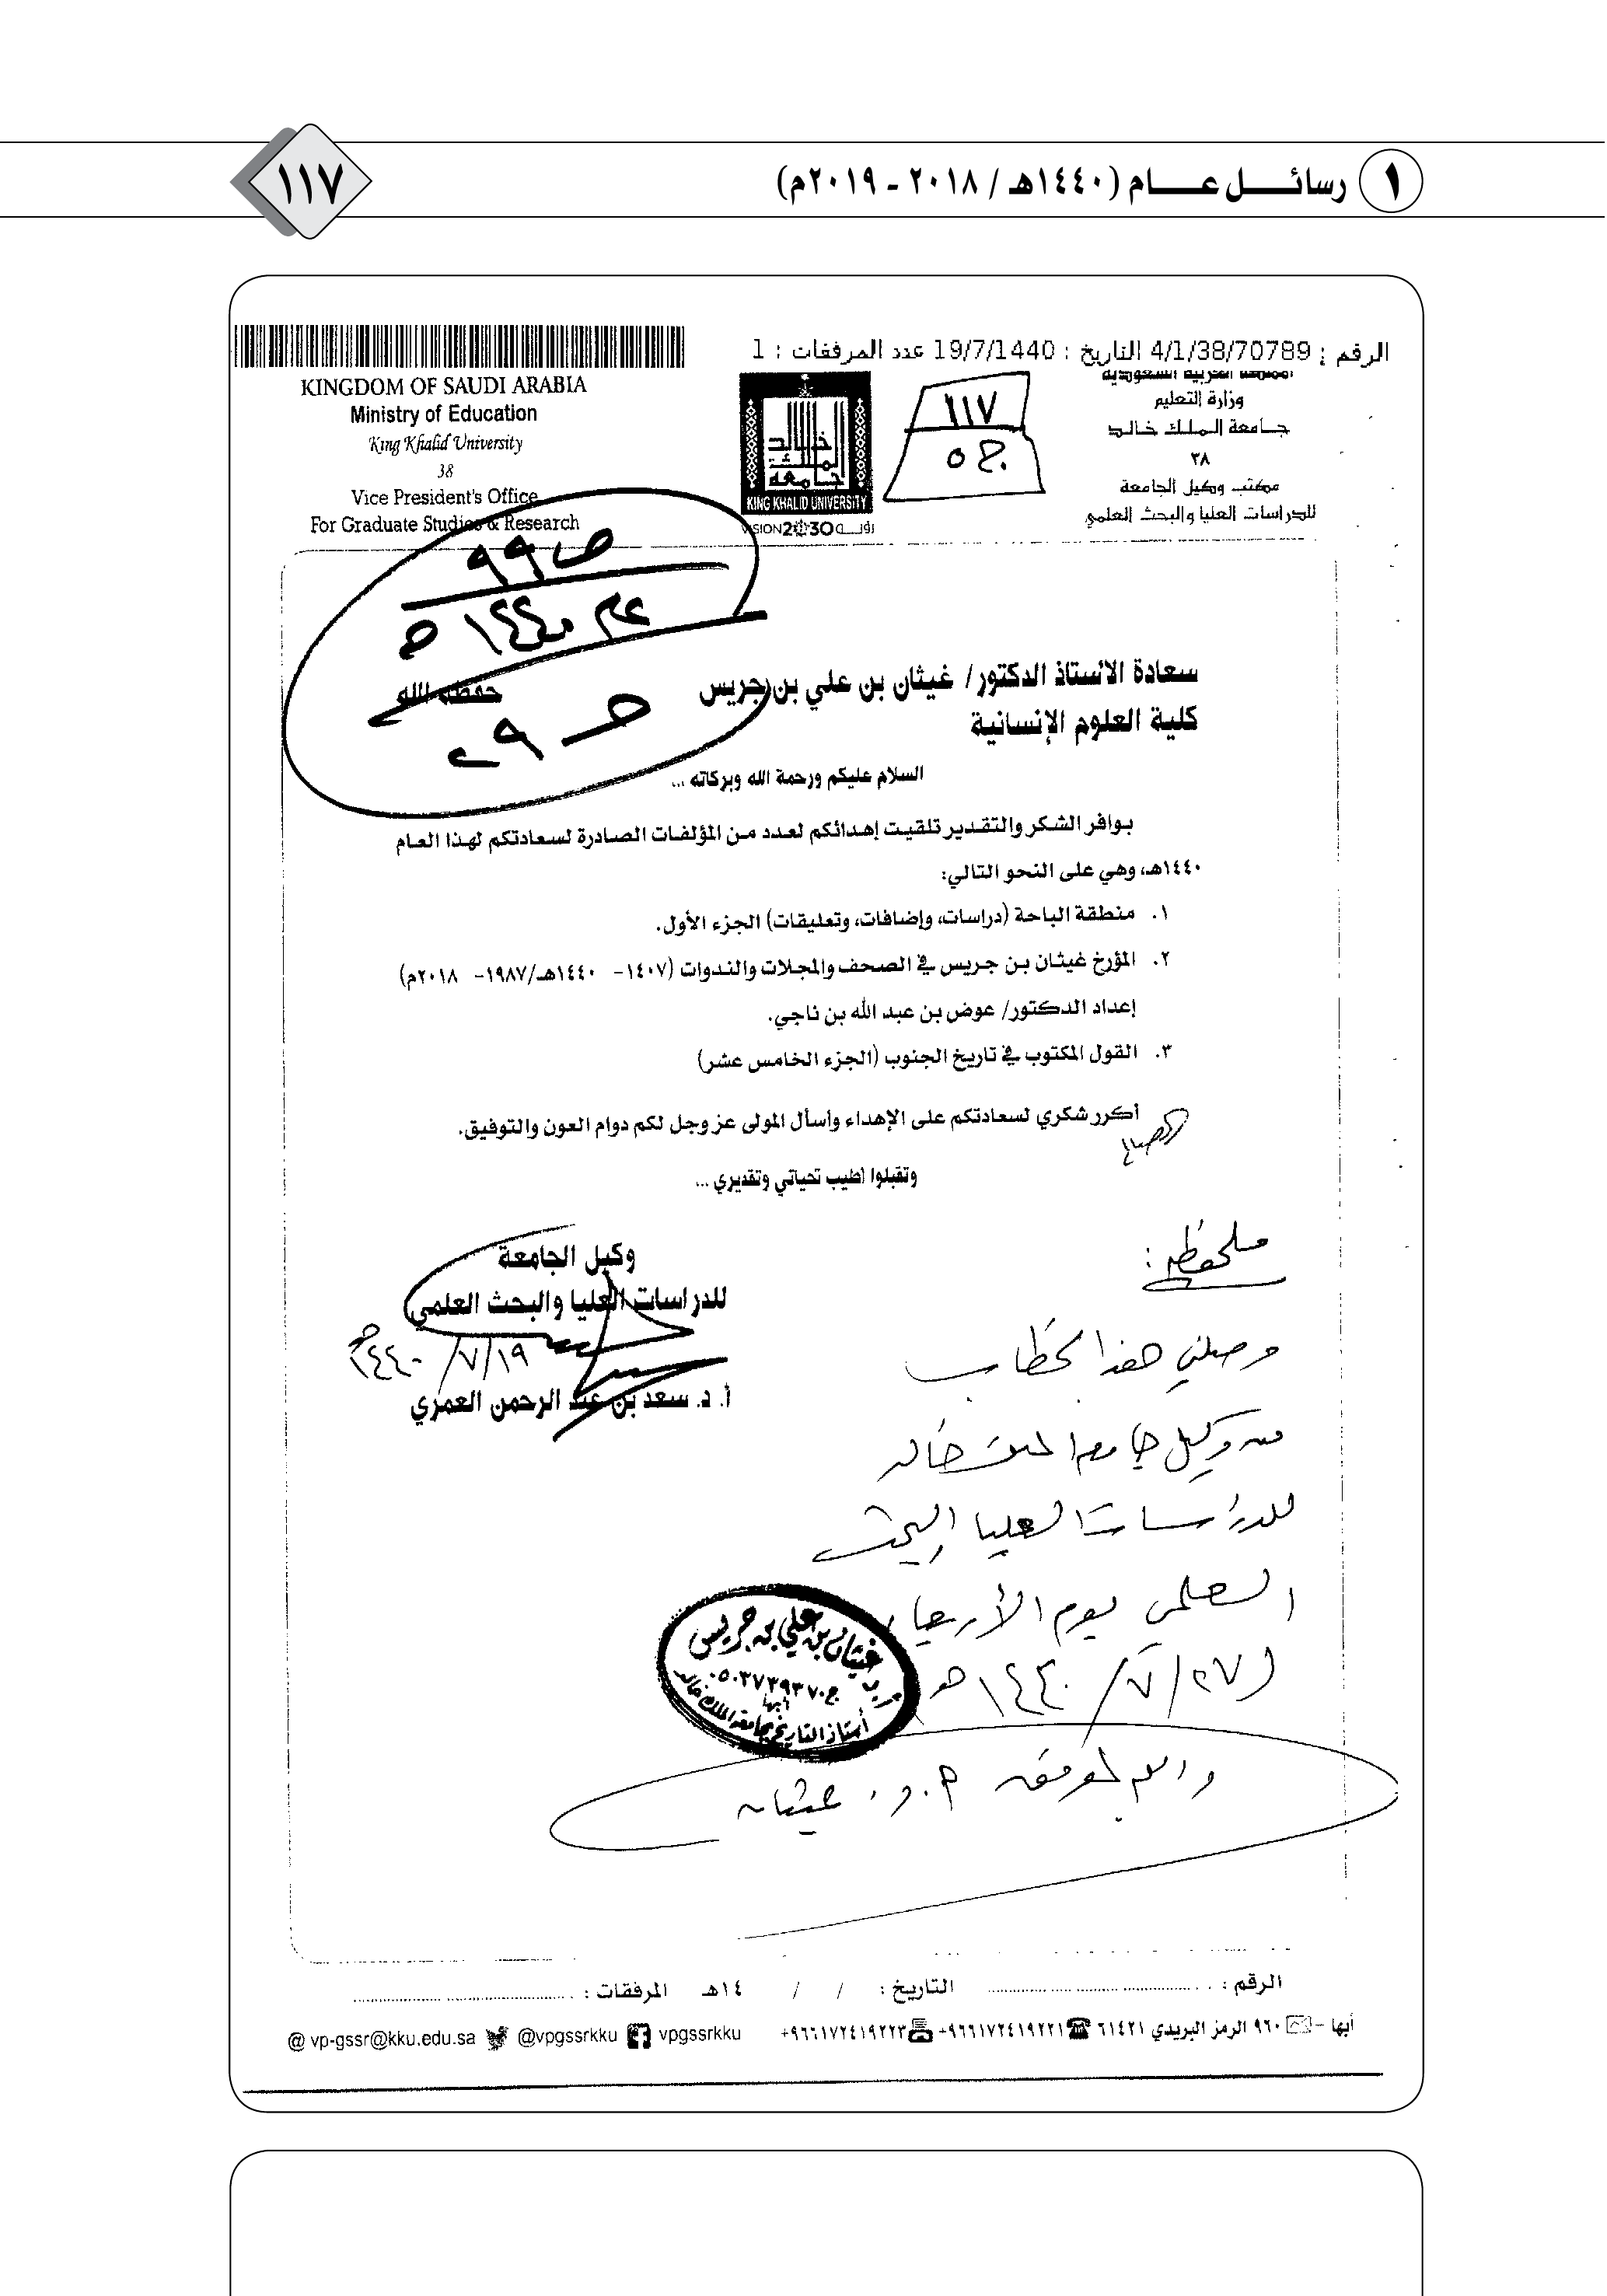 ١ رسائل عام (١٤٤٠هـ / ٢٠١٨ - ٢٠١٩م)
١١٧
الرقم : 4/1/38/70789 التاريخ : 19/7/1440 عدد المرفقات : 1
المملكة العربية السعودية
وزارة التعليم
جامعة الملك خالد
٣٨
مكتب وكيل الجامعة
للدراسات العليا والبحث العلمي
١١٧
ج ٥
جامعة الملك خالد
KING KHALID UNIVERSITY
VISION 2030 رؤيـــة
KINGDOM OF SAUDI ARABIA
Ministry of Education
King Khalid University
38
Vice President's Office
For Graduate Studies & Research
ص ٩٩
عام ١٤٤٠هـ
سعادة الأستاذ الدكتور/ غيثان بن علي بن جريس حفظه الله
كلية العلوم الإنسانية
السلام عليكم ورحمة الله وبركاته ...
بوافر الشكر والتقدير تلقيت إهدائكم لعدد من المؤلفات الصادرة لسعادتكم لهذا العام
١٤٤٠هـ، وهي على النحو التالي:
١. منطقة الباحة (دراسات، وإضافات، وتعليقات) الجزء الأول.
٢. المؤرخ غيثان بن جريس في الصحف والمجلات والندوات (١٤٠٧- ١٤٤٠هـ/١٩٨٧- ٢٠١٨م)
إعداد الدكتور/ عوض بن عبد الله بن ناجي.
٣. القول المكتوب في تاريخ الجنوب (الجزء الخامس عشر)
أكرر شكري لسعادتكم على الإهداء وأسأل المولى عز وجل لكم دوام العون والتوفيق.
وتقبلوا أطيب تحياتي وتقديري ...
وكيل الجامعة
للدراسات العليا والبحث العلمي
١٩/٧/١٤٤٠هـ
أ. د. سعد بن عبد الرحمن العمري
ملحوظة :
وصلني هذا الخطاب
من وكيل جامعة الملك خالد
للدراسات العليا والبحث
العلمي يوم الأربعاء
(٢٧/٧/١٤٤٠هـ)
والله الموفق أ. د. غيثان
غيثان بن علي بن جريس
ج ٠٥٠٣٧٣٩٣٧٠
أبها
أستاذ التاريخ بجامعة الملك خالد
الرقم : .................... التاريخ : / / ١٤هـ المرفقات : ....................
أبها - ٩٦٠ الرمز البريدي ٦١٤٢١ +٩٦٦١٧٢٤١٩٢٢١ +٩٦٦١٧٢٤١٩٢٢٣ vpgssrkku @vpgssrkku vp-gssr@kku.edu.sa @